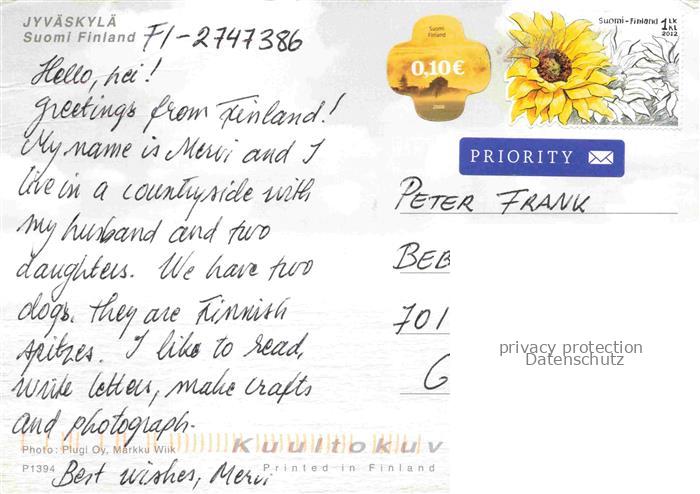 JYVÄSKYLÄ
Suomi Finland FI-2747386
Hello, hei!
Greetings from Finland!
My name is Mervi and I
live in a countryside with
my husband and two
daughters. We have two
dogs, they are Finnish
spitzes. I like to read,
write letters, make crafts
and photograph.
Photo: Plugi Oy, Markku Wiik
Kuultokuv
P1394
Best wishes, Mervi
Printed in Finland
Suomi
Finland
0,10 €
2008
Suomi-Finland
1 LK
KL
2012
PRIORITY
PETER FRANK
BEB
701
G
privacy protection
Datenschutz